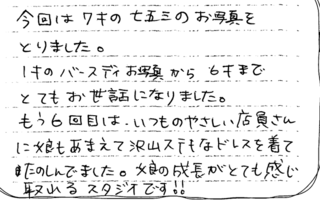 今回は7才の七五三のお写真を
とりました。
1才のバースディお写真から6才まで
とてもお世話になりました。
もう6回目は、いつものやさしい店員さん
に娘もあまえて沢山ステキなドレスを着て
たのしんでました。娘の成長がとても感じ
取れるスタジオです!!